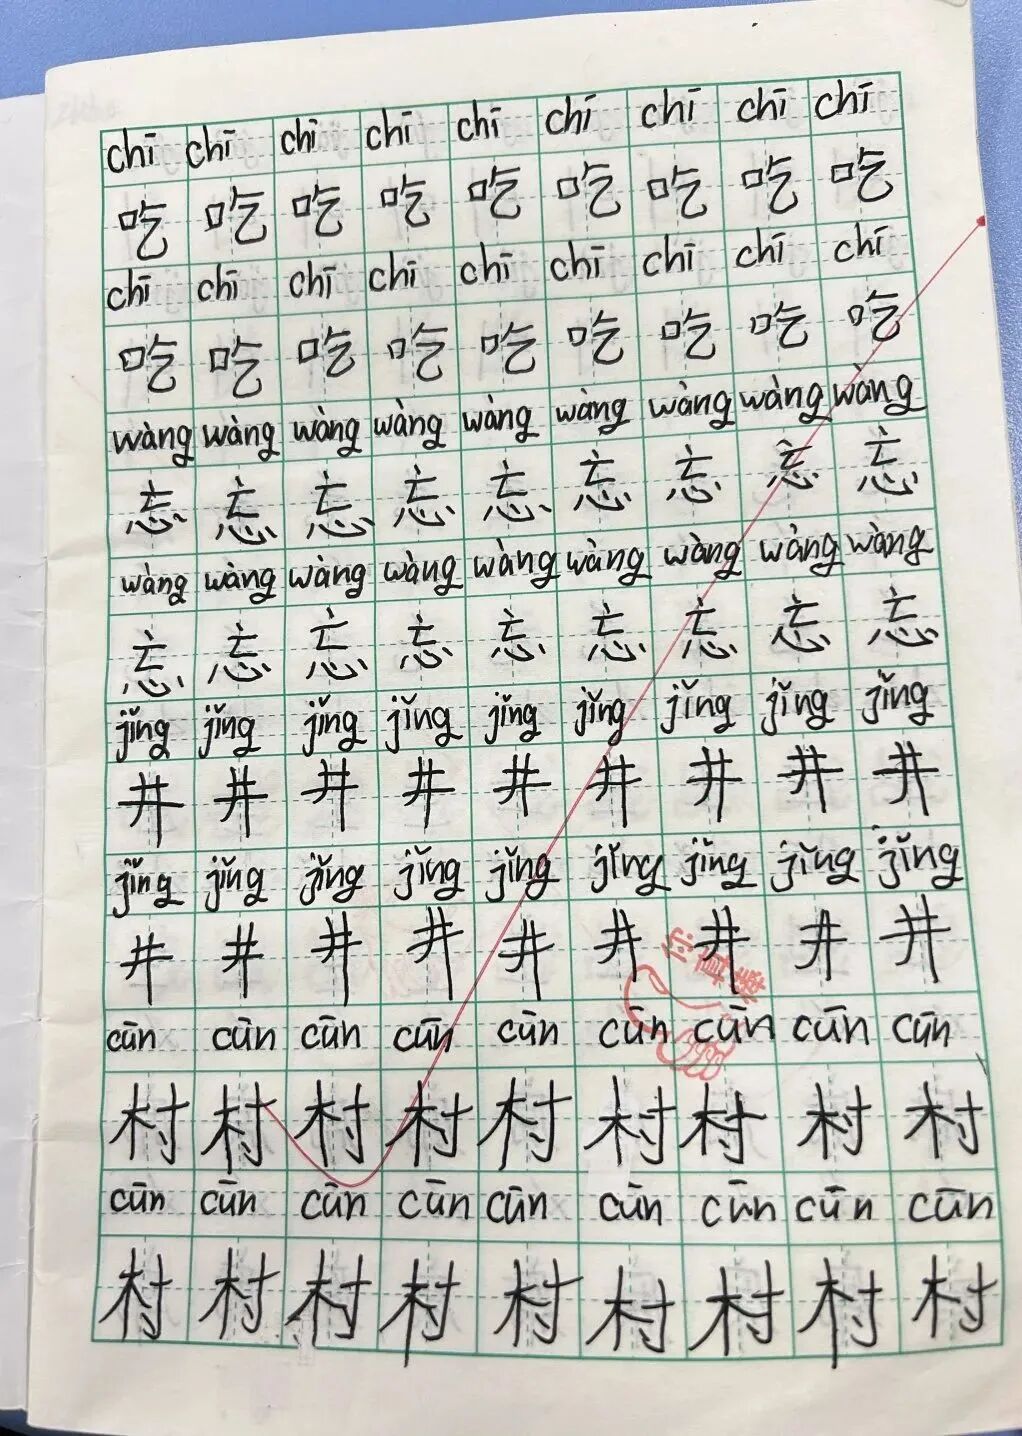 chī chī chī chī chī chī chī chī chī
吃 吃 吃 吃 吃 吃 吃 吃 吃
chī chī chī chī chī chī chī chī chī
吃 吃 吃 吃 吃 吃 吃 吃 吃
wàng wàng wàng wàng wàng wàng wàng wàng wàng
忘 忘 忘 忘 忘 忘 忘 忘 忘
wàng wàng wàng wàng wàng wàng wàng wàng wàng
忘 忘 忘 忘 忘 忘 忘 忘 忘
jǐng jǐng jǐng jǐng jǐng jǐng jǐng jǐng jǐng
井 井 井 井 井 井 井 井 井
jǐng jǐng jǐng jǐng jǐng jǐng jǐng jǐng jǐng
井 井 井 井 井 井 井 井 井
cūn cūn cūn cūn cūn cūn cūn cūn cūn
村 村 村 村 村 村 村 村 村
cūn cūn cūn cūn cūn cūn cūn cūn cūn
村 村 村 村 村 村 村 村 村